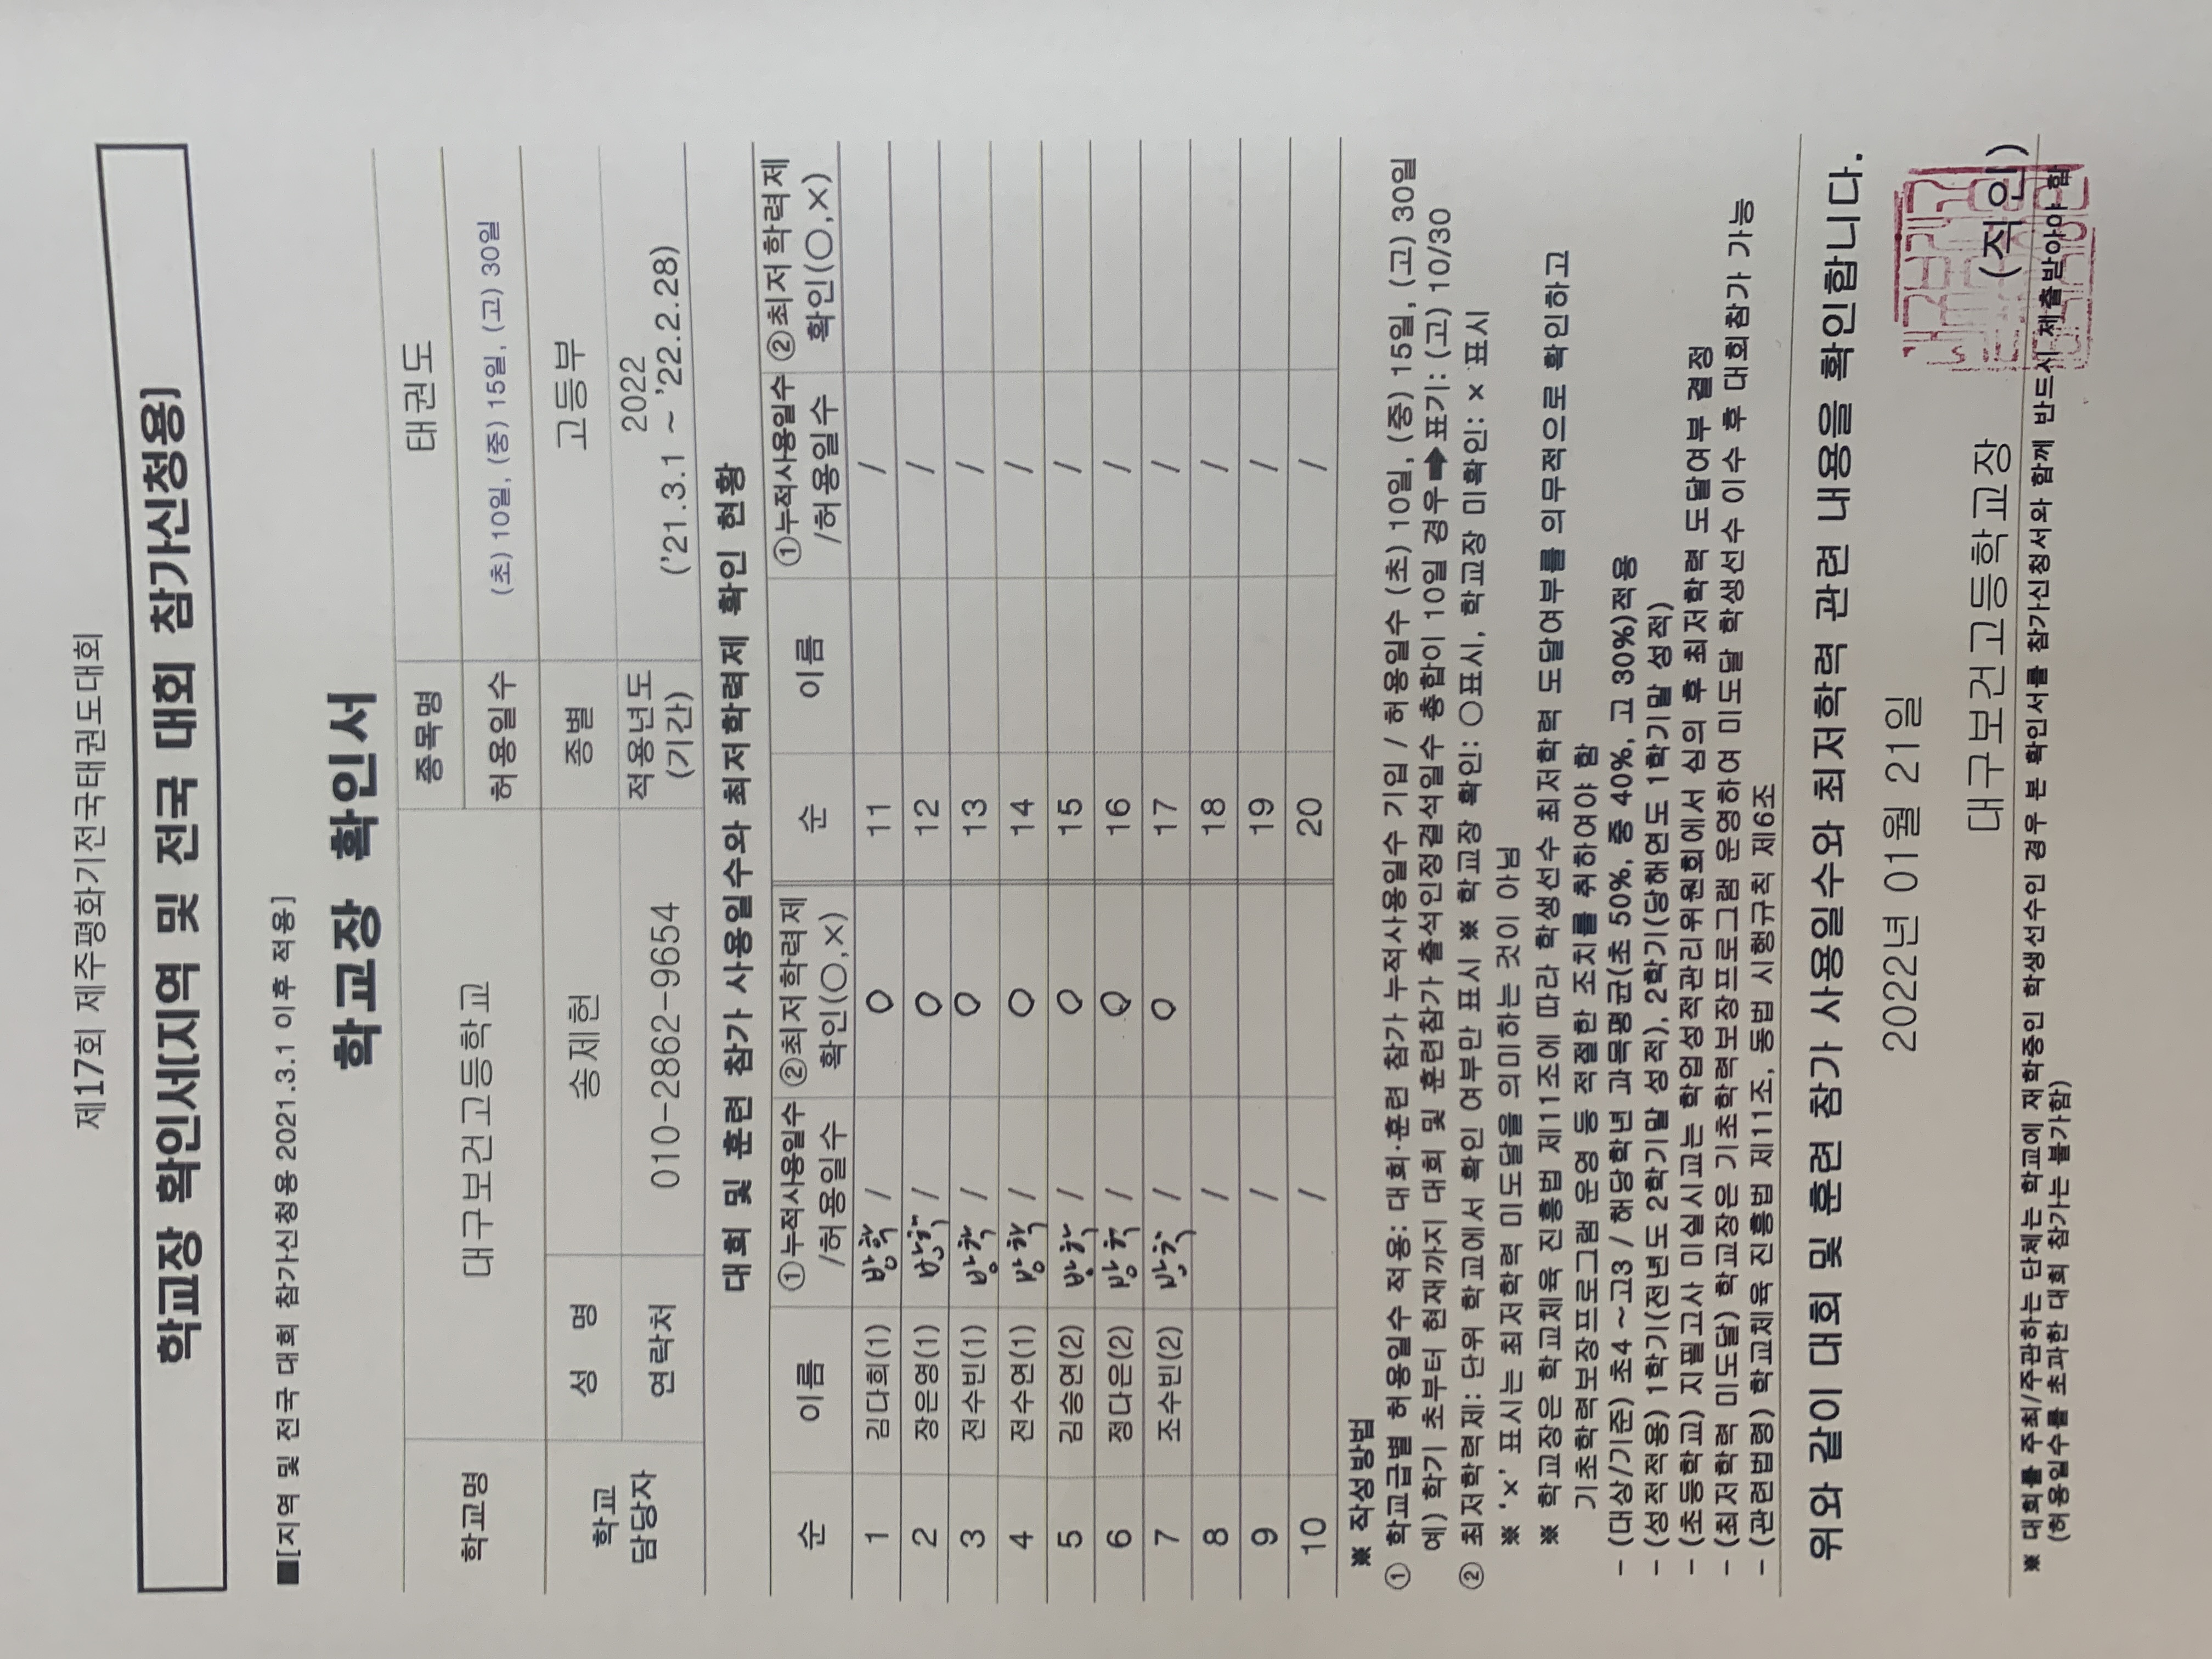 제17회 제주평화기전국태권도대회
학교장 확인서[지역 및 전국 대회 참가신청용]
■[지역 및 전국 대회 참가신청용 2021.3.1 이후 적용]
학교장 확인서
학교명 대구보건고등학교 종목명 태권도
허용일수 (초) 10일, (중) 15일, (고) 30일
학교 담당자 성 명 송제헌 종별 고등부
연락처 010-2862-9654 적용년도 (기간) 2022 ('21.3.1 ~ '22.2.28)
대회 및 훈련 참가 사용일수와 최저학력제 확인 현황
순 이름 ①누적사용일수 /허용일수 ②최저학력제 확인(○,×) 순 이름 ①누적사용일수 /허용일수 ②최저학력제 확인(○,×)
1 김다희(1) 방학 / ○ 11 /
2 장은영(1) 방학 / ○ 12 /
3 전수빈(1) 방학 / ○ 13 /
4 전수연(1) 방학 / ○ 14 /
5 김승연(2) 방학 / ○ 15 /
6 정다은(2) 방학 / ○ 16 /
7 조수빈(2) 방학 / ○ 17 /
8 / 18 /
9 / 19 /
10 / 20 /
※ 작성방법
① 학교급별 허용일수 적용: 대회·훈련 참가 누적사용일수 기입 / 허용일수 (초) 10일, (중) 15일, (고) 30일
예) 학기 초부터 현재까지 대회 및 훈련참가 출석인정결석일수 총합이 10일 경우➡표기: (고) 10/30
② 최저학력제: 단위 학교에서 확인 여부만 표시 ※ 학교장 확인: ○표시, 학교장 미확인: × 표시
※ '×' 표시는 최저학력 미도달을 의미하는 것이 아님
※ 학교장은 학교체육 진흥법 제11조에 따라 학생선수 최저학력 도달여부를 의무적으로 확인하고
기초학력보장프로그램 운영 등 적절한 조치를 취하여야 함
- (대상/기준) 초4 ~고3 / 해당학년 과목평균(초 50%, 중 40%, 고 30%)적용
- (성적적용) 1학기(전년도 2학기말 성적), 2학기(당해연도 1학기말 성적)
- (초등학교) 지필고사 미실시교는 학업성적관리위원회에서 심의 후 최저학력 도달여부 결정
- (최저학력 미도달) 학교장은 기초학력보장프로그램 운영하여 미도달 학생선수 이수 후 대회참가 가능
- (관련법령) 학교체육 진흥법 제11조, 동법 시행규칙 제6조
위와 같이 대회 및 훈련 참가 사용일수와 최저학력 관련 내용을 확인합니다.
2022년 01월 21일
대구보건고등학교장 (직인)
※ 대회를 주최/주관하는 단체는 학교에 재학중인 학생선수인 경우 본 확인서를 참가신청서와 함께 반드시 제출받아야 함
(허용일수를 초과한 대회 참가는 불가함)